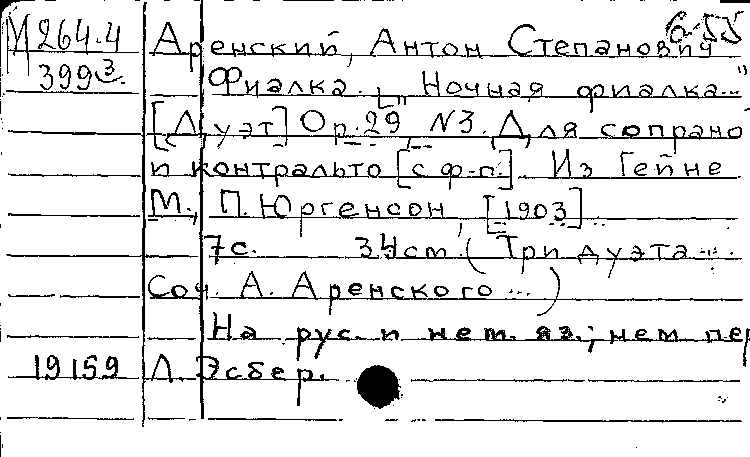 6-55
М 264.4 Аренский, Антон Степанович
399 3. Фиалка. „Ночная фиалка..."
[Дуэт] Op. 29, N3. Для сопрано
и контральто [с ф-п.]. Из Гейне
М., П. Юргенсон, [1903]
7с. 34см. (Три дуэта...
Соч. А. Аренского...)
На рус. и нем. яз.; нем пер
19159 Л. Эсбер.